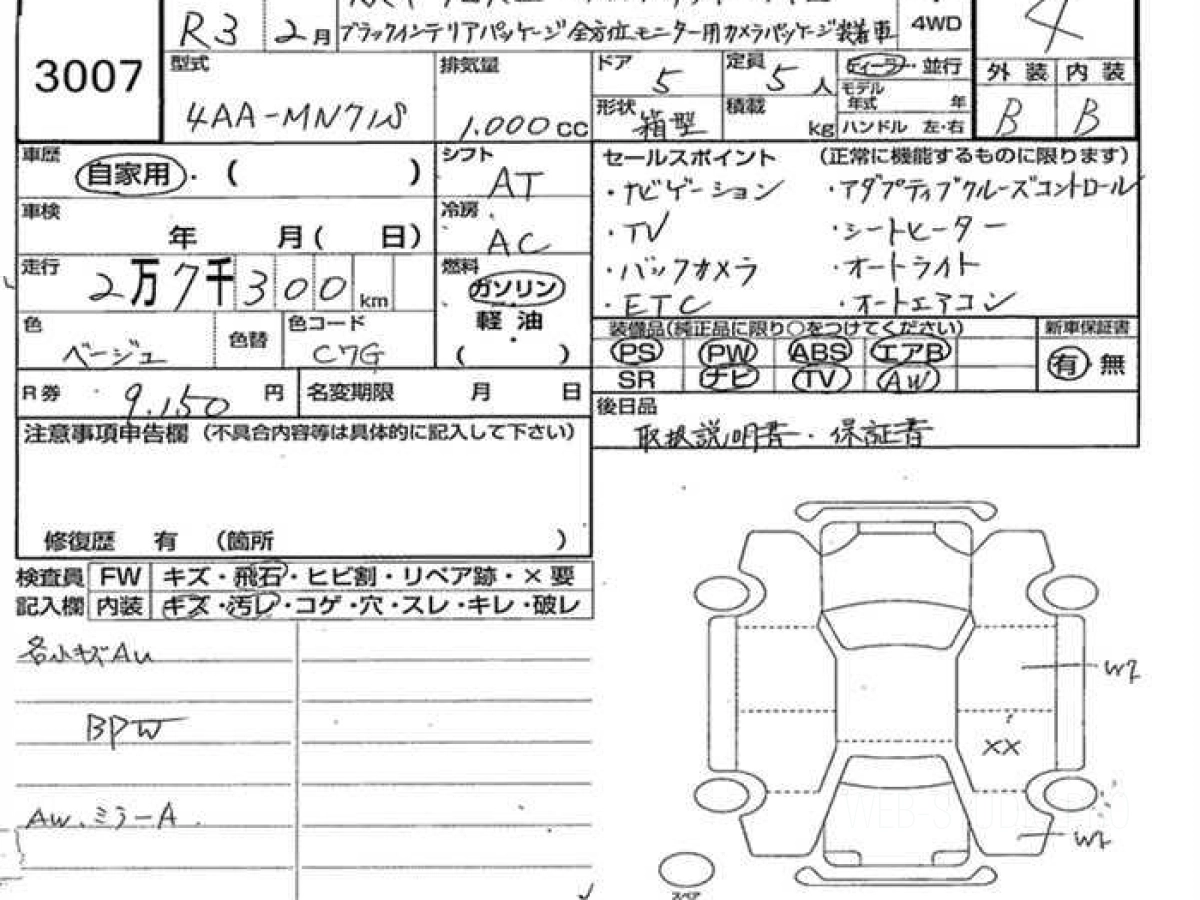 R3 2月 ブラックインテリアパッケージ 全方位モニター用カメラパッケージ装着車 4WD 4
3007
型式 4AA-MN71S
排気量 1.000cc
ドア 5
定員 5人
ディーラー・並行
モデル年式 年
形状 箱型
積載 kg
ハンドル 左・右
外装 内装
B B
車歴 自家用・( )
シフト AT
車検 年 月( 日)
冷房 AC
走行 2万7千300km
燃料 ガソリン
軽油
( )
色 ベージュ
色替
色コード C7G
R券 9.150円
名変期限 月 日
セールスポイント (正常に機能するものに限ります)
・ナビゲーション ・アダプティブクルーズコントロール
・TV ・シートヒーター
・バックカメラ ・オートライト
・ETC ・オートエアコン
装備品(純正品に限り○をつけてください) 新車保証書
PS PW ABS エアB 有 無
SR ナビ TV AW
後日品
取扱説明書・保証書
注意事項申告欄(不具合内容等は具体的に記入して下さい)
修復歴 有 (箇所 )
検査員 FW キズ・飛石・ヒビ割・リペア跡・×要
記入欄 内装 キズ・汚レ・コゲ・穴・スレ・キレ・破レ
各小キズAu
BPW
AW、ミラーA
W2
XX
スペア